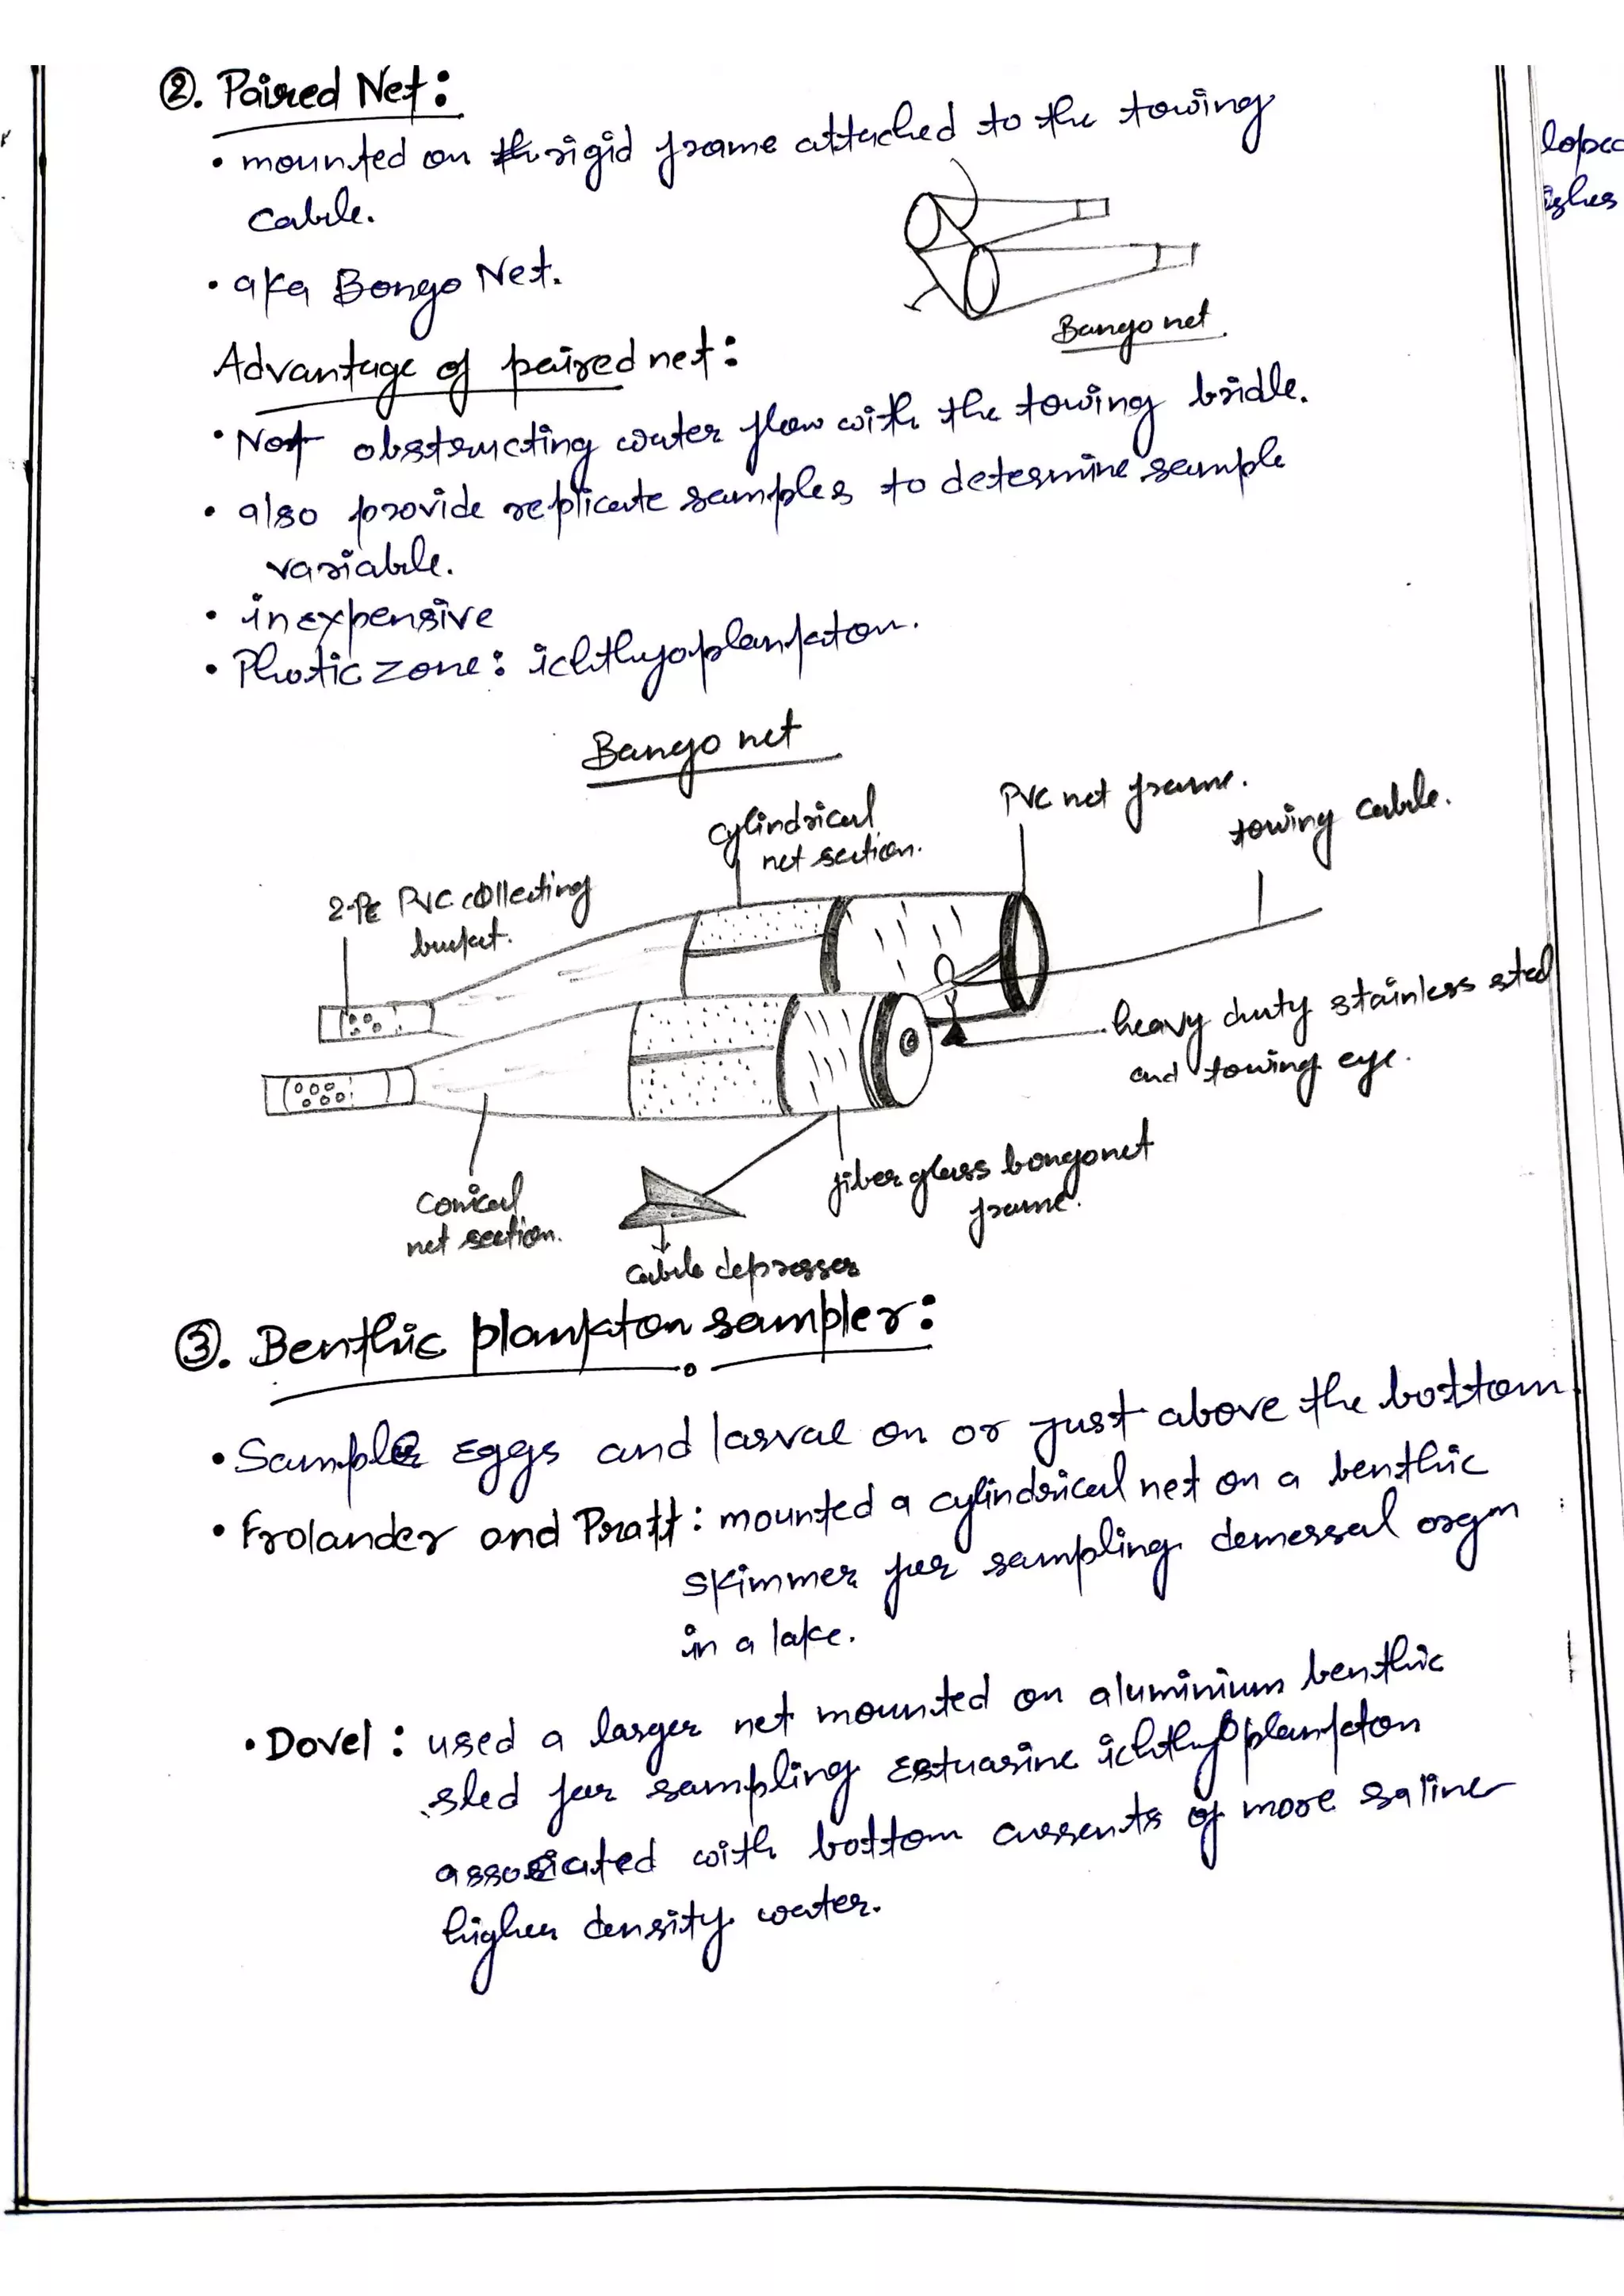 ②. Paired Net:
• mounted on rigid frame attached to the towing
cable.
• aka Bongo Net.
Bango net.
Advantage of paired net:
• Not obstructing water flow with the towing bridle.
• also provide replicate samples to determine sample
variable.
• inexpensive
• Photic zone: ichthyoplankton.
Bango net
cylindrical
net section.
PVC net frame.
towing cable.
2-Pc PVC collecting
bucket.
heavy duty stainless steel
and towing eye.
conical
net section.
fiber glass bongo net
frame.
cable depresser
③. Benthic plankton sampler:
• Sample Eggs and larvae on or just above the bottom
• Frolander and Pratt: mounted a cylindrical net on a benthic
skimmer for sampling demersal orgm
in a lake.
• Dovel: used a larger net mounted on aluminium benthic
sled for sampling Estuarine ichthyoplankton
associated with bottom currents of more saline
higher density water.